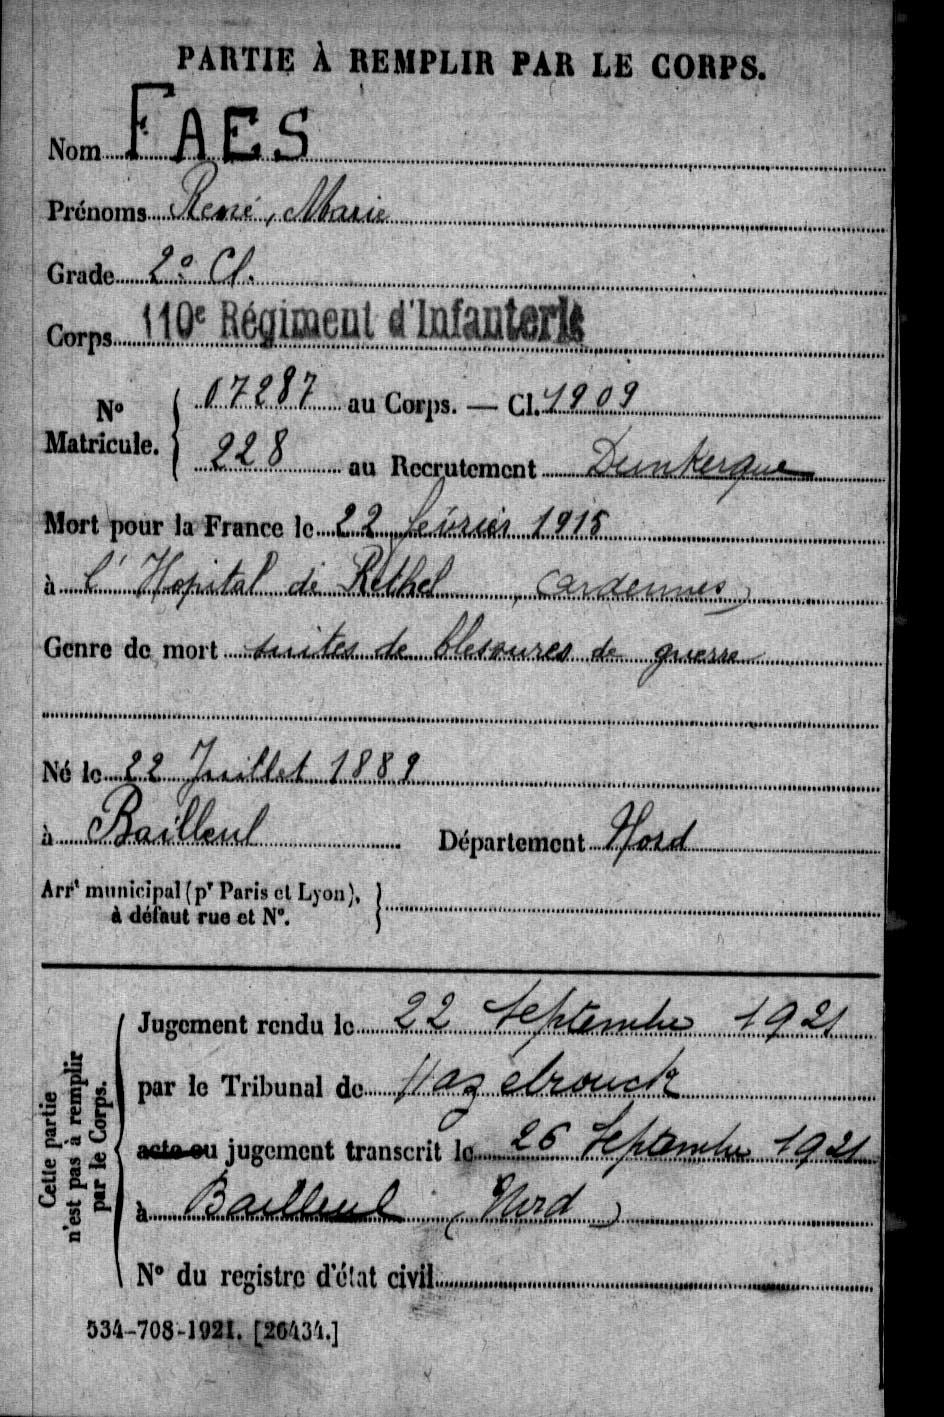 PARTIE À REMPLIR PAR LE CORPS.
Nom FAES
Prénoms René, Marie
Grade 2e Cl.
Corps 110e Régiment d'Infanterie
No Matricule. 07287 au Corps. — Cl. 1909
228 au Recrutement Dunkerque
Mort pour la France le 22 février 1915
à l'Hopital de Rethel (ardennes)
Genre de mort suites de blessures de guerre
Né le 22 Juillet 1889
à Bailleul Département Nord
Arrt municipal (pr Paris et Lyon),
à défaut rue et No.
Cette partie
n'est pas à remplir
par le Corps.
Jugement rendu le 22 Septembre 1921
par le Tribunal de Hazebrouck
acte ou jugement transcrit le 26 Septembre 1921
à Bailleul (Nord)
No du registre d'état civil
534-708-1921. [26434.]